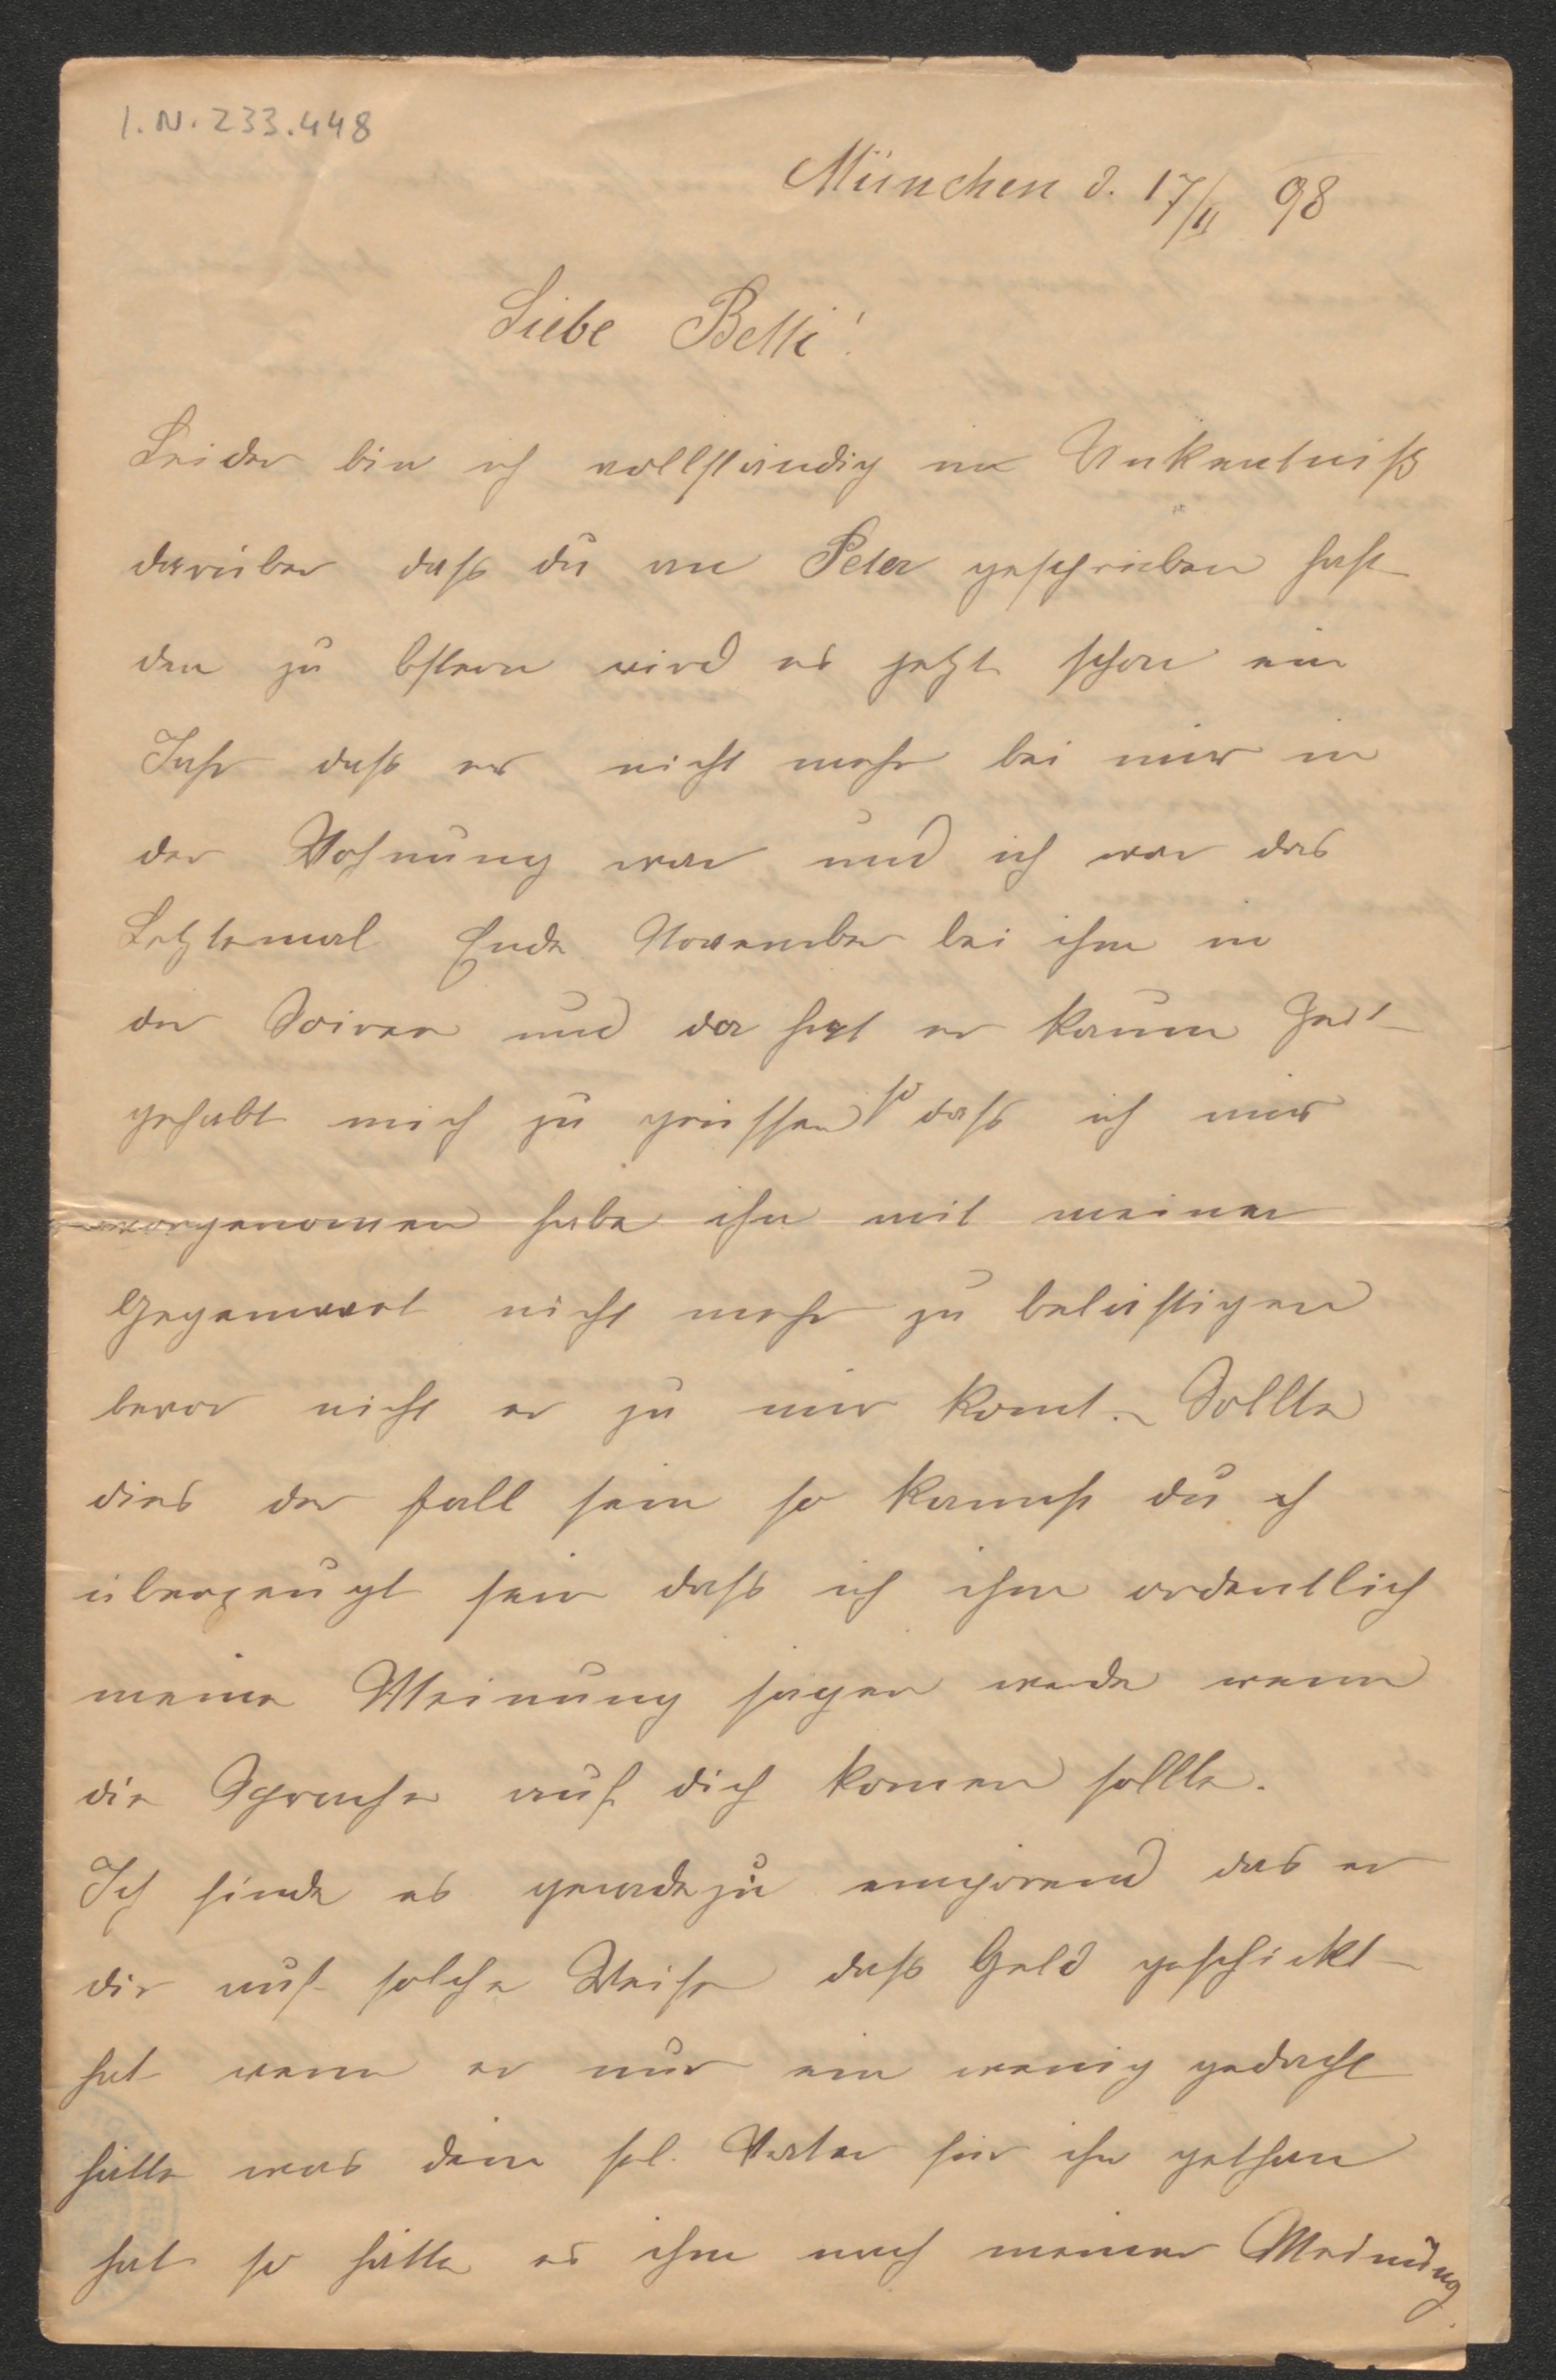 I.N. 233.448
München d. 17/II 98
Liebe Betti!
Leider bin ich vollständig in Unkentniß
darüber daß du an Peter geschrieben hast
den zu Ostern wird es jetzt schon ein
Jahr daß er nicht mehr bei mir in
der Wohnung war und ich war das
Letztemal Ende November bei ihm in
der Soiree und da hat er kaum Zeit
gehabt mich zu grüssen so daß ich mir
vorgenomen habe ihn mit meiner
Gegenwart nicht mehr zu belästigen
bevor nicht er zu mir komt. Sollte
dies der Fall sein so kannst du
überzeugt sein daß ich ihm ordentlich
meine Meinung sagen werde wenn
die Sprache auf dich komen sollte.
Ich finde es geradezu empörend das er
dir auf solche Weise daß Geld geschickt
hat wenn er nur ein wenig gedacht
hätte was dein sel. Vater für ihn gethan
hat so hätte es ihm nach meiner Meinung